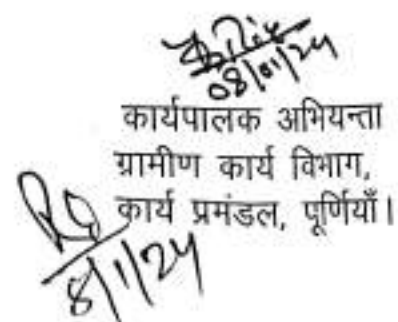 08/01/24
कार्यपालक अभियन्ता
ग्रामीण कार्य विभाग,
कार्य प्रमंडल, पूर्णियाँ।
8/1/24